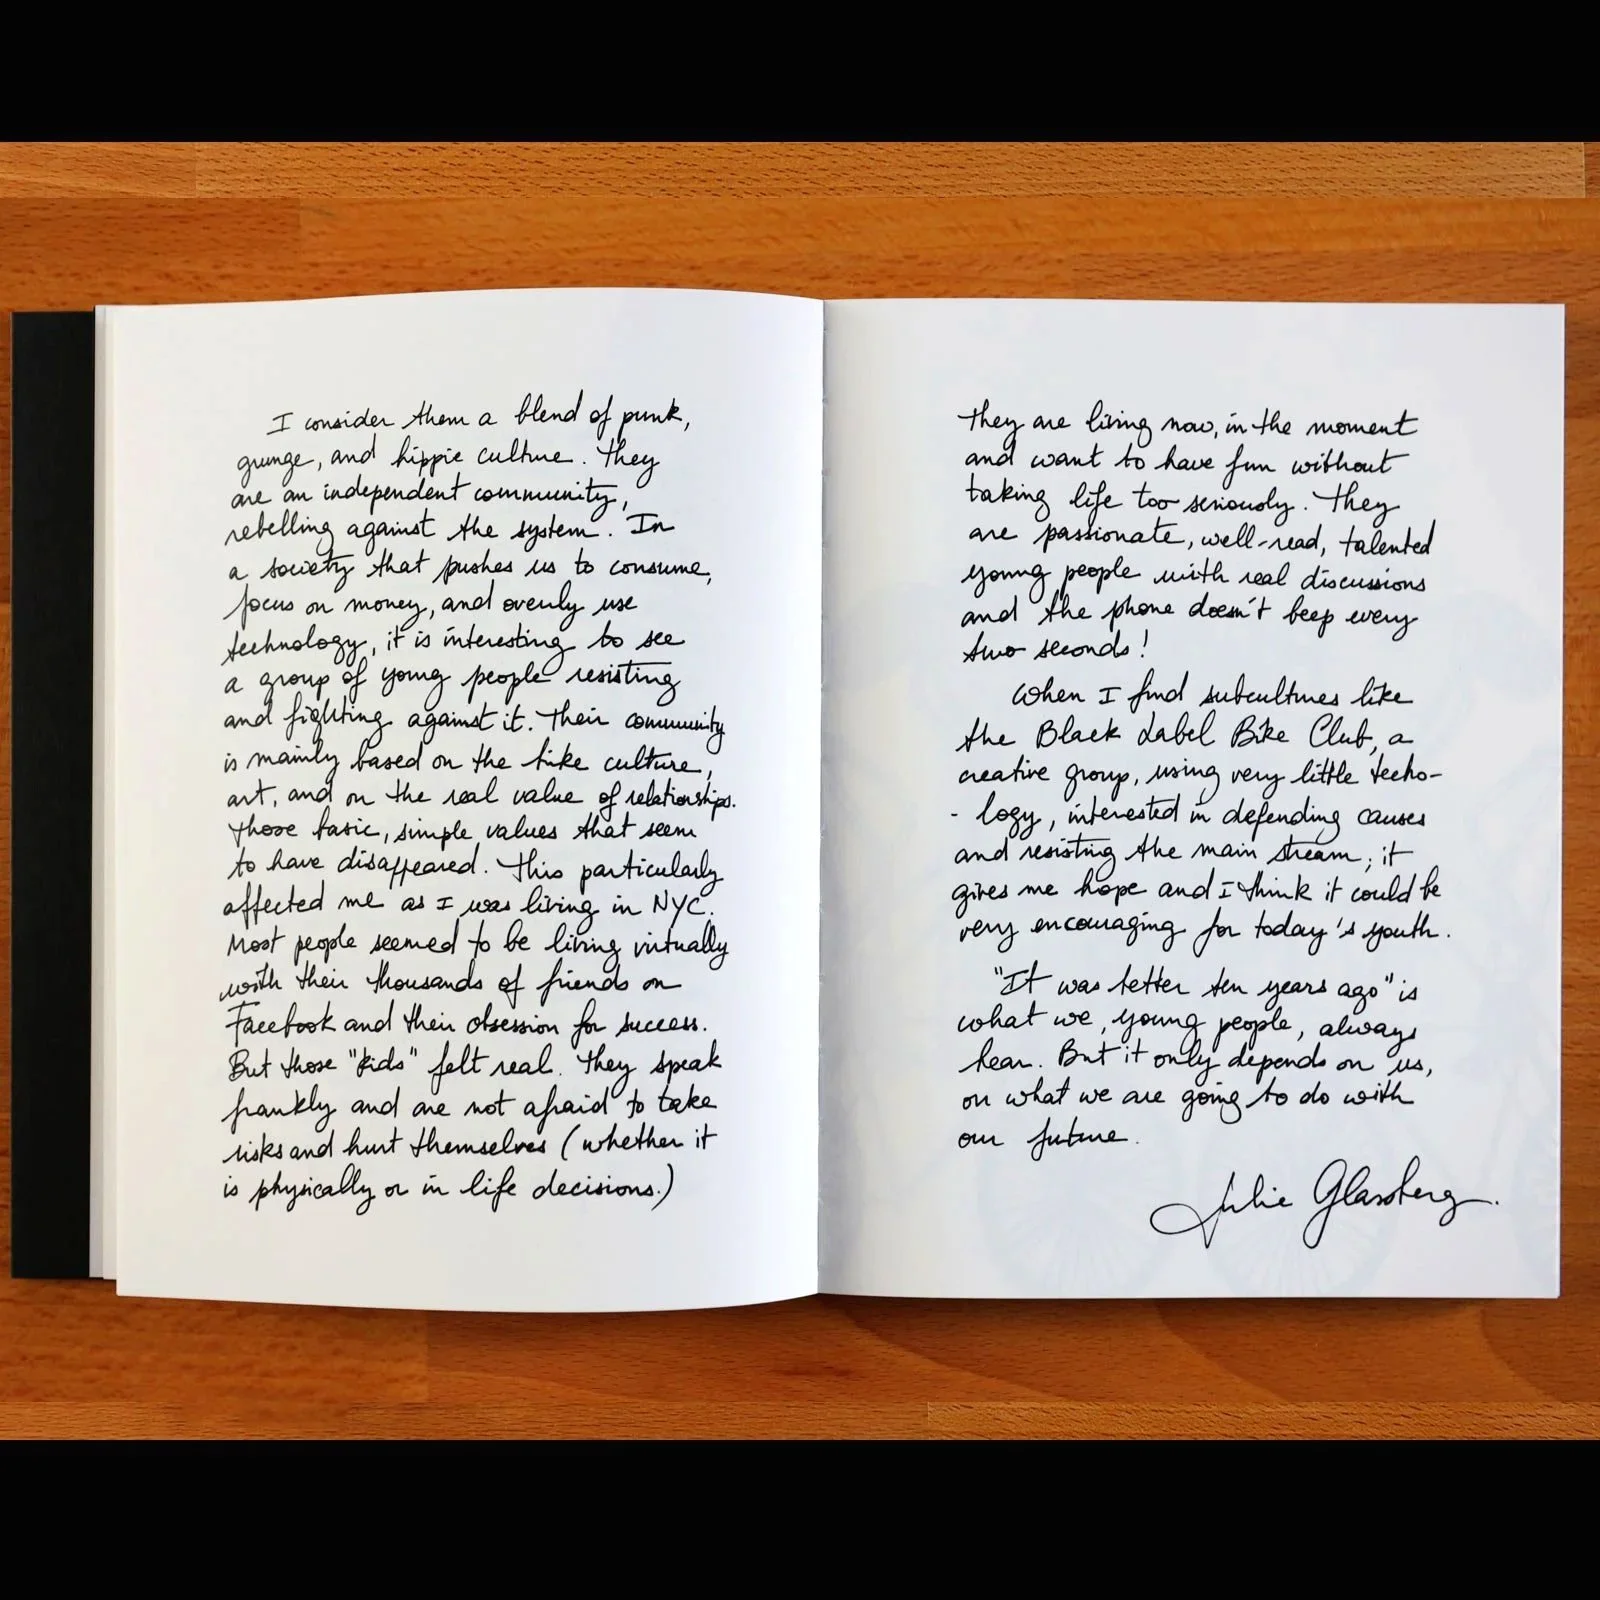 I consider them a blend of punk,
grunge, and hippie culture. They
are an independent community,
rebelling against the system. In
a society that pushes us to consume,
focus on money, and overly use
technology, it is interesting to see
a group of young people resisting
and fighting against it. Their community
is mainly based on the bike culture,
art, and on the real value of relationships.
Those basic, simple values that seem
to have disappeared. This particularly
affected me as I was living in NYC.
Most people seemed to be living virtually
with their thousands of friends on
Facebook and their obsession for success.
But those "kids" felt real. They speak
frankly and are not afraid to take
risks and hurt themselves (whether it
is physically or in life decisions.)
They are living now, in the moment
and want to have fun without
taking life too seriously. They
are passionate, well-read, talented
young people with real discussions
and the phone doesn't beep every
two seconds!
When I find subcultures like
the Black Label Bike Club, a
creative group, using very little techo-
- logy, interested in defending causes
and resisting the main stream; it
gives me hope and I think it could be
very encouraging for today's youth.
"It was better ten years ago" is
what we, young people, always
hear. But it only depends on us,
on what we are going to do with
our future.
Julie Glassberg.